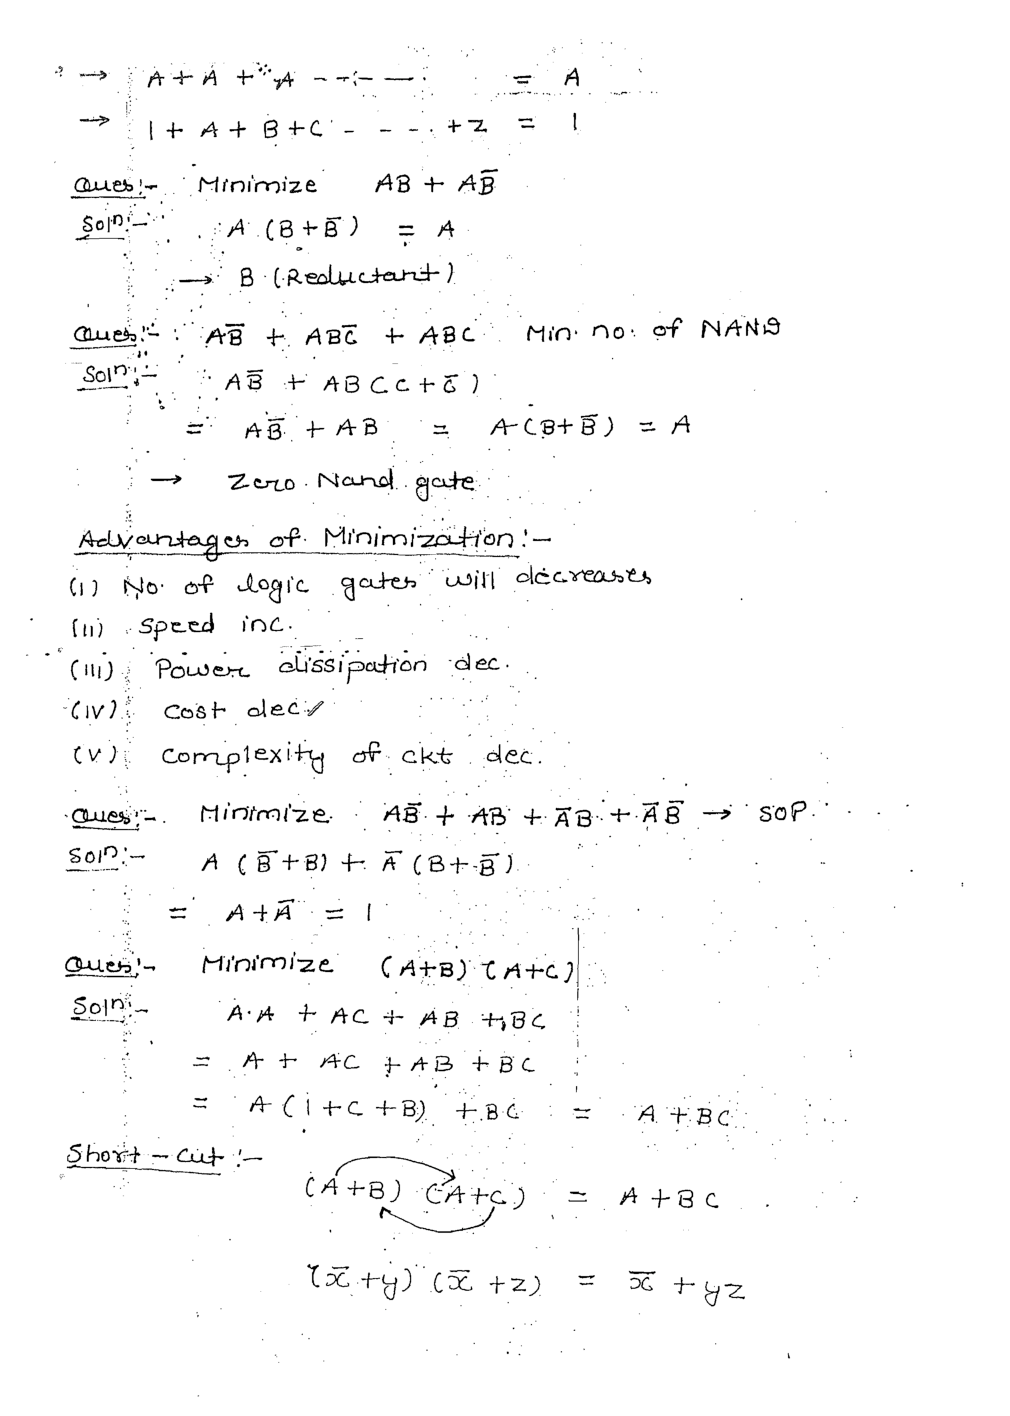 → A + A + A - - - - — = A
→ 1 + A + B + C - - - - + Z = 1
Ques:- Minimize AB + AB̅
Soln:- A (B + B̅) = A
→ B (Reductant)
Ques:- AB̅ + ABC̅ + ABC Min. no. of NAND
Soln:- AB̅ + AB(C + C̅)
= AB̅ + AB = A(B + B̅) = A
→ Zero Nand gate
Advantages of Minimization:-
(i) No. of logic gates will decreases
(ii) Speed inc.
(iii) Power dissipation dec.
(iv) Cost dec.
(v) Complexity of ckt dec.
Ques:- Minimize AB̅ + AB + A̅B + A̅ B̅ → SOP.
Soln:- A (B̅ + B) + A̅ (B + B̅)
= A + A̅ = 1
Ques:- Minimize (A+B) (A+C)
Soln:- A·A + AC + AB + BC
= A + AC + AB + BC
= A(1 + C + B) + BC = A + BC
Short-cut:-
(A+B) (A+C) = A + BC
(x̅ + y) (x̅ + z) = x̅ + yz